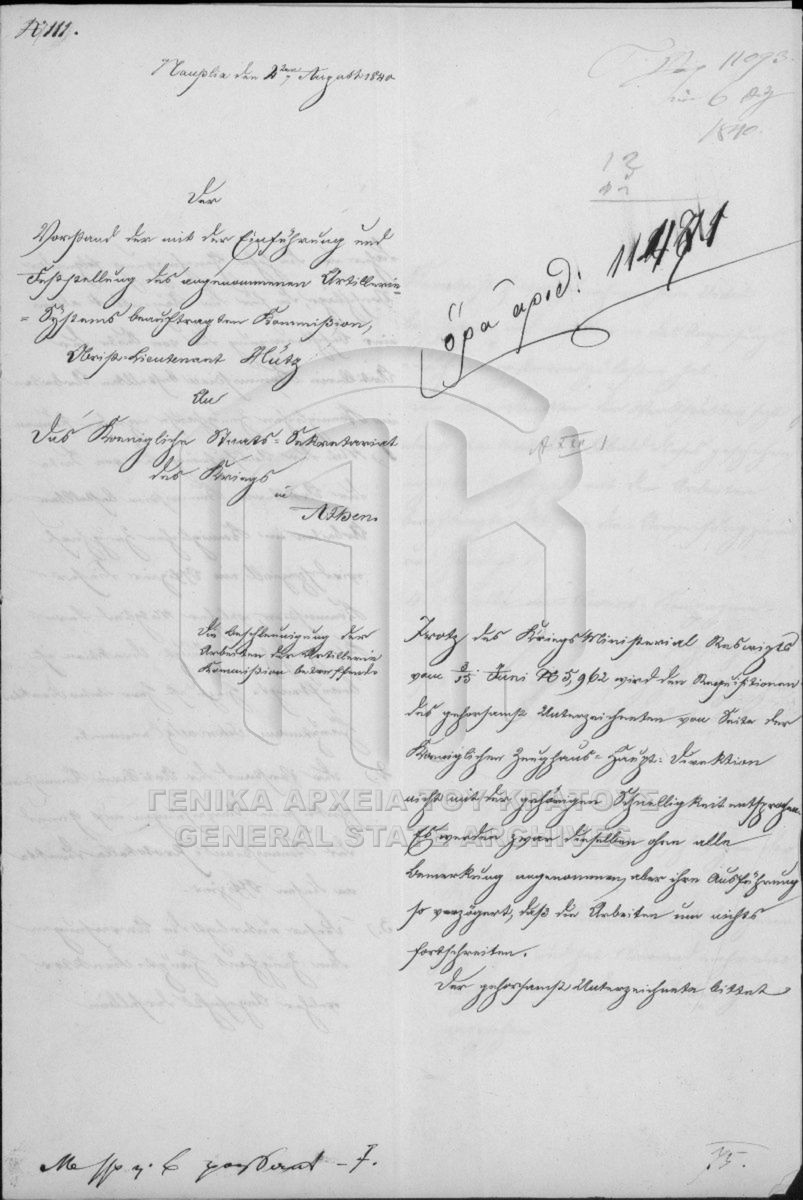 N 111.
Nauplia den 2ten August 1840
11093
6
1840.
12
ὅρα ἀριθ: 11481
Der
Vorstand der mit der Einführung und
Feststellung des angenommenen Artillerie-
=Systems beauftragten Kommißion,
Obrist-Lieutenant Hütz
An
Das Koenigliche Staats-Sekretariat
des Kriegs
in
Athen.
Die Beschleunigung der
Arbeiten der Artillerie
Kommißion betreffend.
Trotz des Kriegs Ministerial Rescripts
vom 3/15 Juni N 5,962 wird den Requisitionen
des gehorsamst Unterzeichneten von Seite der
Koeniglichen Zeughaus-Haupt-Direktion
nicht mit der gehörigen Schnelligkeit entsprochen.
Es werden zwar dieselben ohne alle
Bemerkung angenommen, aber ihre Ausführung
so verzögert, daß die Arbeiten um nichts
fortschreiten.
Der gehorsamst Unterzeichnete bittet
ΓΕΝΙΚΑ ΑΡΧΕΙΑ ΤΟΥ ΚΡΑΤΟΥΣ
GENERAL STATE ARCHIVES